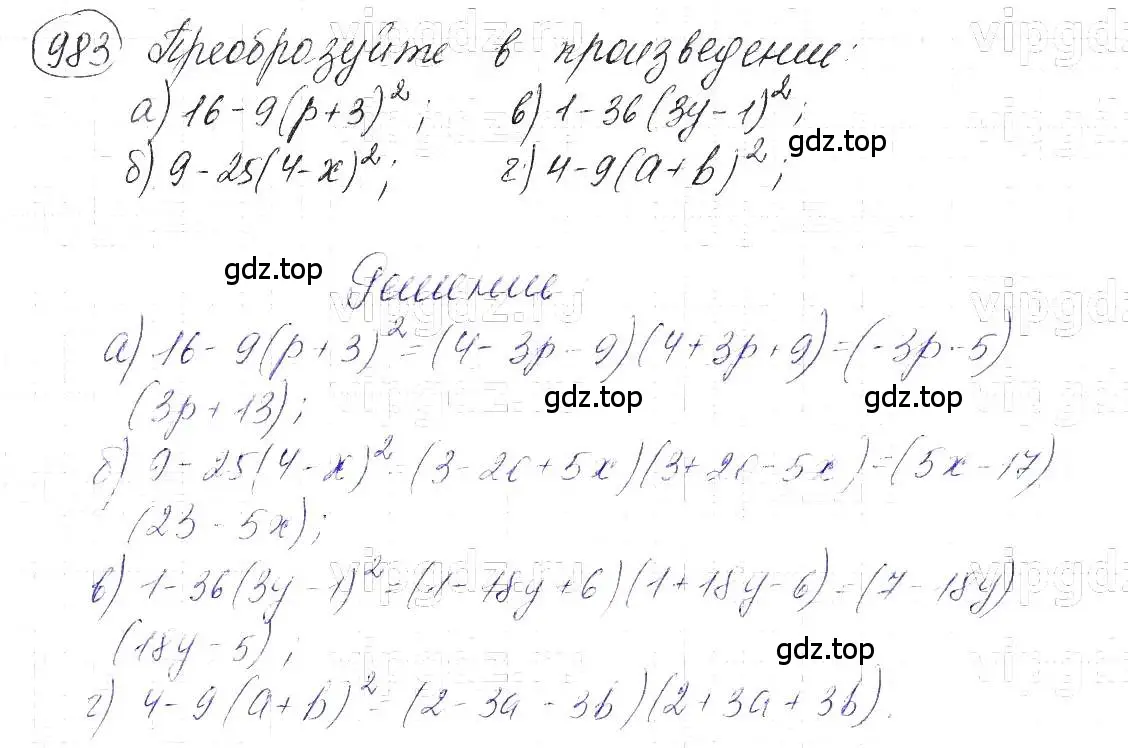 983 Преобразуйте в произведение:
а) 16-9(p+3)²; в) 1-36(3y-1)²;
gdz.top
б) 9-25(4-x)²; г) 4-9(a+b)²;
gdz.top Решение
а) 16-9(p+3)²=(4-3p-9)(4+3p+9)=(-3p-5)
gdz.top gdz.top
(3p+13);
б) 9-25(4-x)²=(3-20+5x)(3+20-5x)=(5x-17)
(23-5x);
в) 1-36(3y-1)²=(1-18y+6)(1+18y-6)=(7-18y)
(18y-5);
gdz.top
г) 4-9(a+b)²=(2-3a-3b)(2+3a+3b).
vipgdz.ru